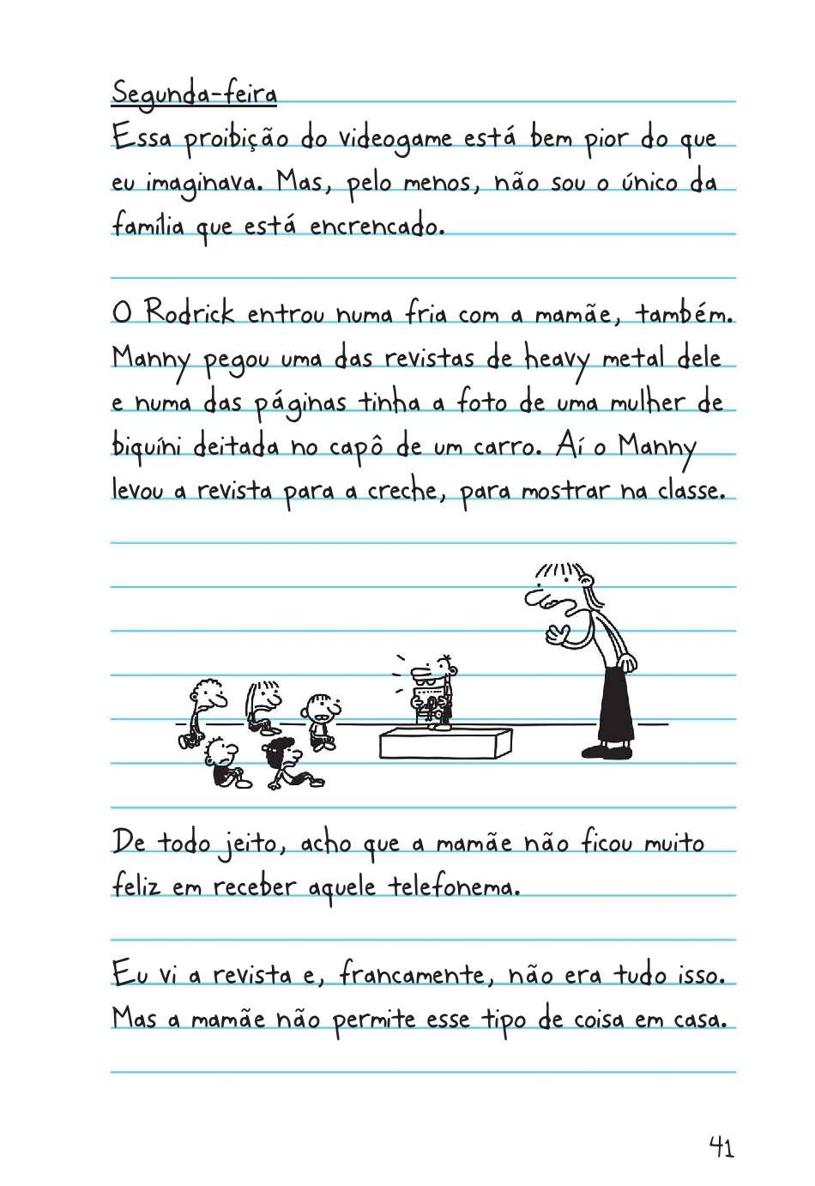 Segunda-feira
Essa proibição do videogame está bem pior do que
eu imaginava. Mas, pelo menos, não sou o único da
família que está encrencado.
O Rodrick entrou numa fria com a mamãe, também.
Manny pegou uma das revistas de heavy metal dele
e numa das páginas tinha a foto de uma mulher de
biquíni deitada no capô de um carro. Aí o Manny
levou a revista para a creche, para mostrar na classe.
De todo jeito, acho que a mamãe não ficou muito
feliz em receber aquele telefonema.
Eu vi a revista e, francamente, não era tudo isso.
Mas a mamãe não permite esse tipo de coisa em casa.
41